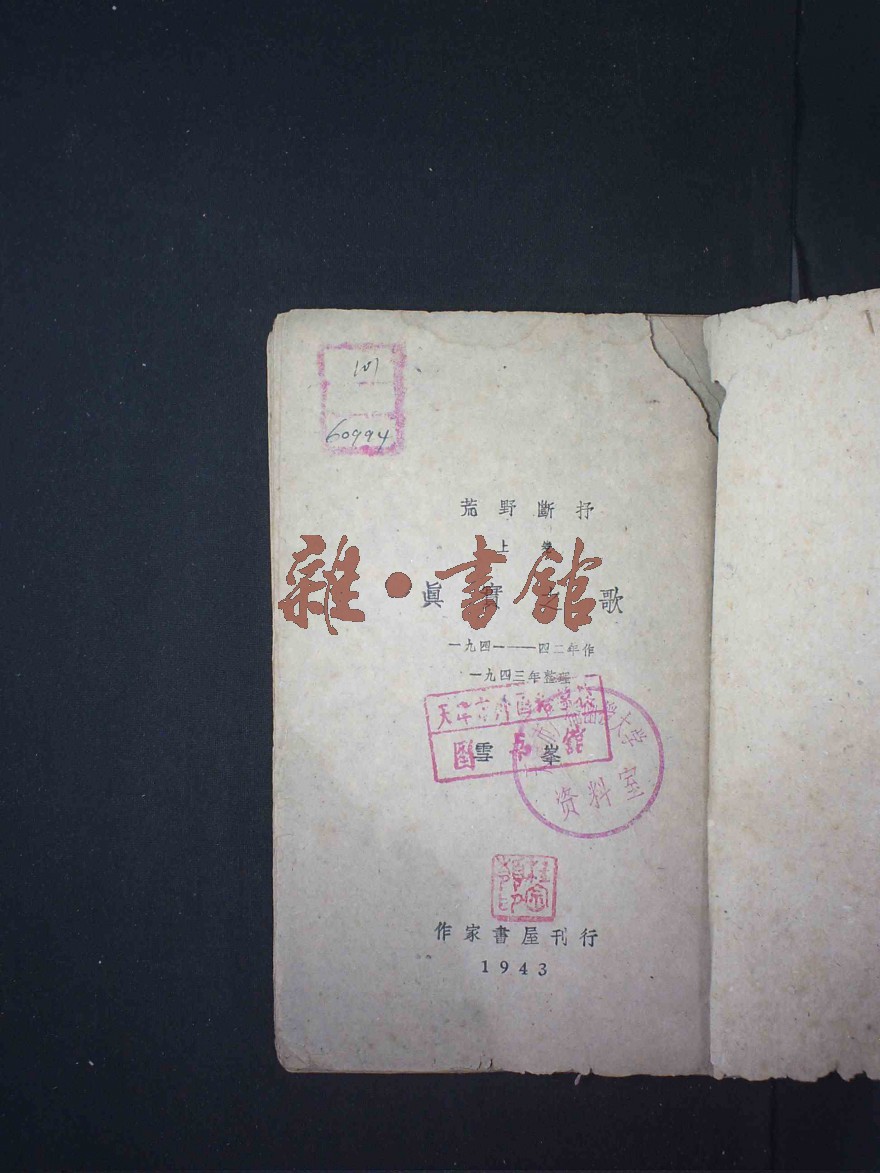 101
60994
荒野斷抒
上卷
雜·書館
眞實之歌
一九四一——四二年作
一九四三年整理
天津市
圖書館
大学
资料室
雪峯
作家書屋刊行
1943